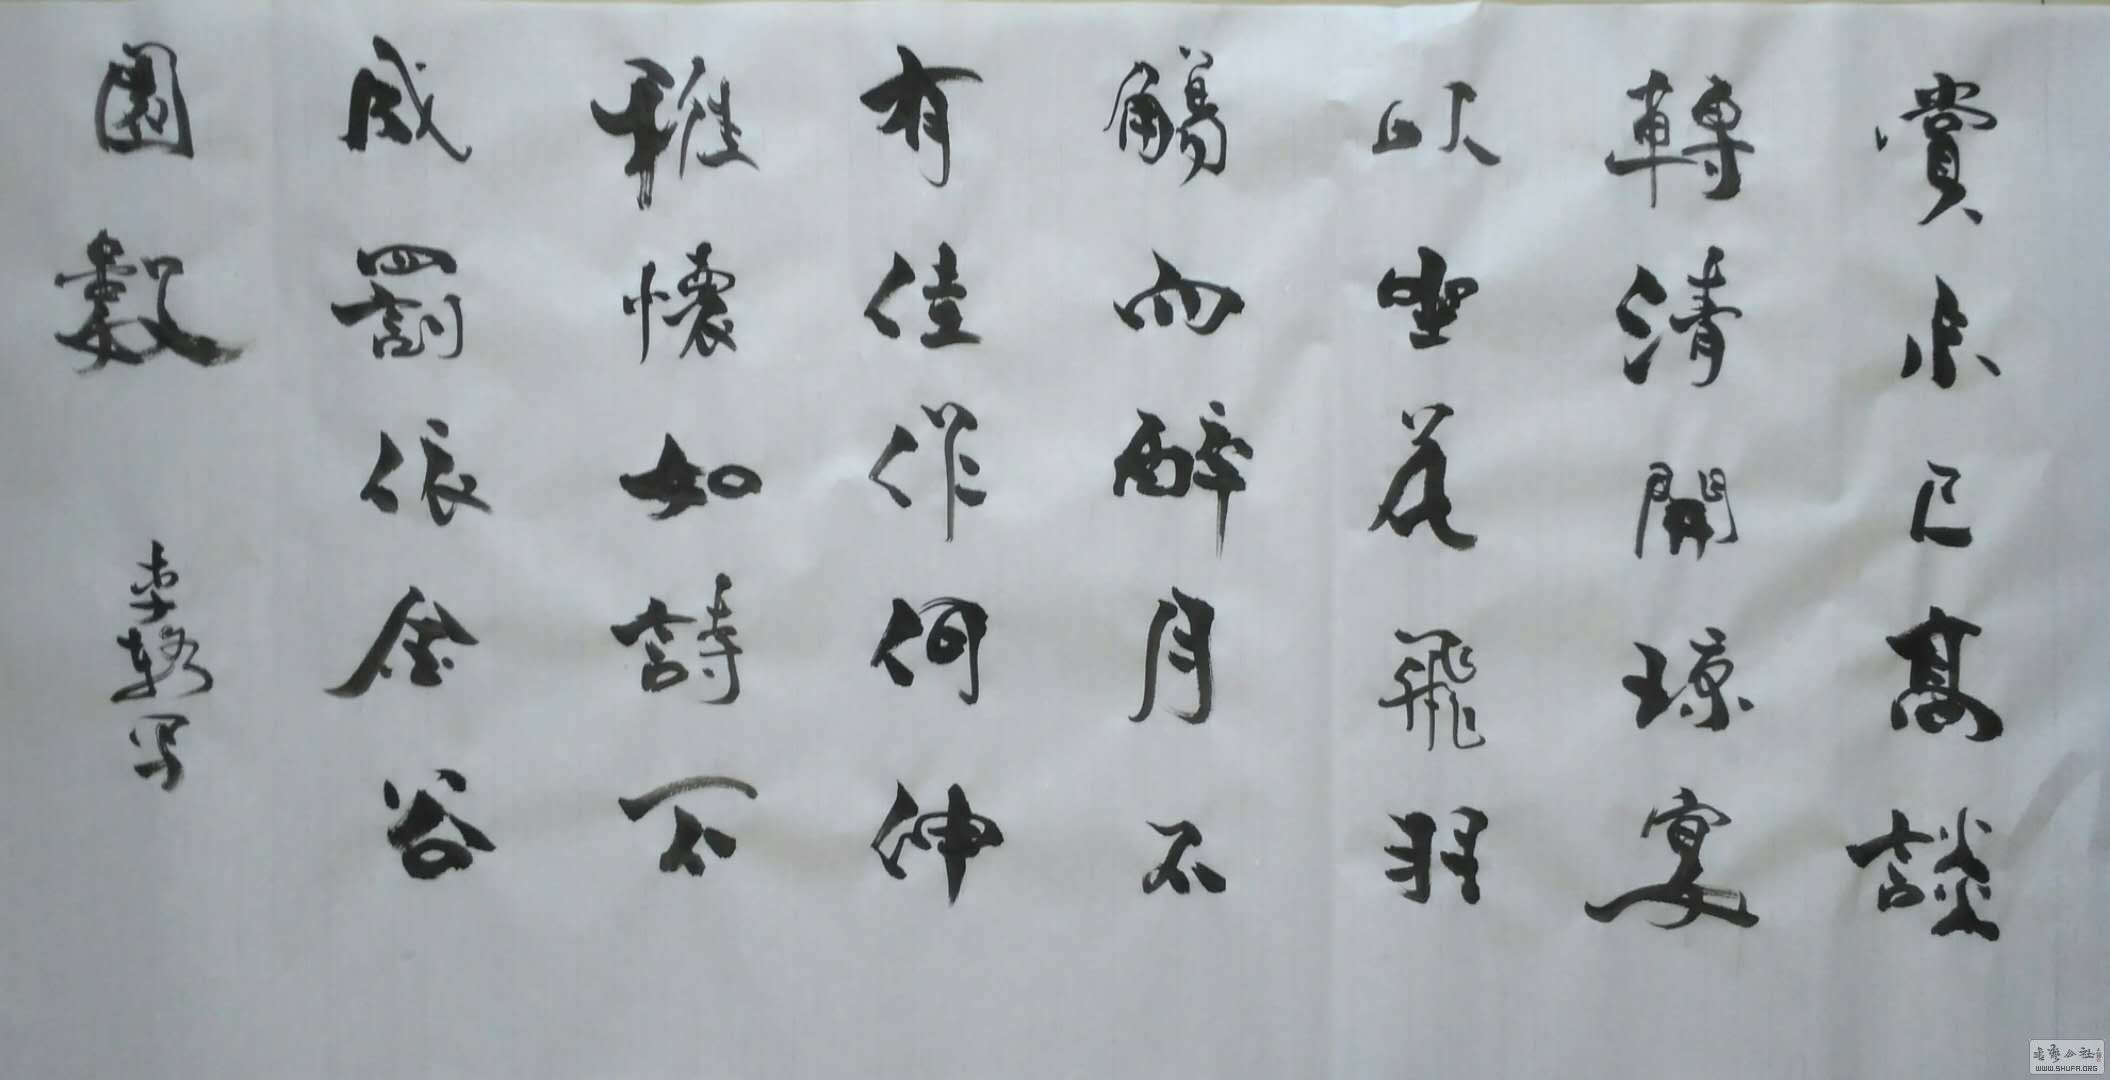 賞未已高談
轉清開琼宴
以坐花飛羽
觴而醉月不
有佳作何伸
雅懷如詩不
成罰依金谷
園數
写
WWW.SHUFA.ORG